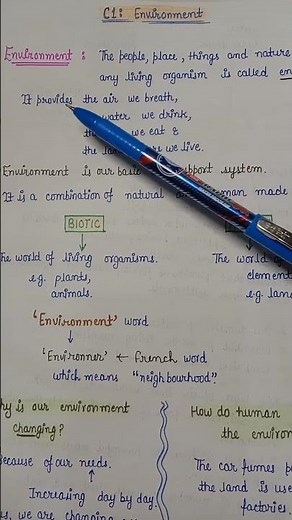 C1: Environment
Environment : The people, place, things and nature
any living organism is called
It provides the air we breath,
water we drink,
we eat &
we live.
Environment is our support system.
It is a combination of natural made
BIOTIC
The world of living organisms.
e.g. plants,
animals.
The world of
element
e.g.
'Environment' word
'Environner' ← French word
which means "neighbourhood".
Why is our environment
changing?
Because of our needs.
Increasing day by day.
we are changing
How do human
the environ
The car fumes
the land is use
factories.